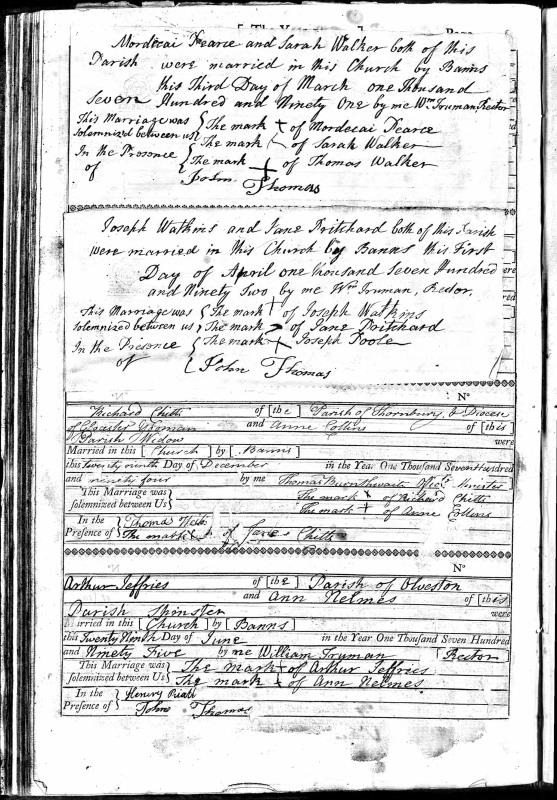 Mordecai Pearce and Sarah Walker both of this
Parish were married in this Church by Banns
this Third Day of March one Thousand
Seven Hundred and Ninety One by me Wm Truman Rector
This Marriage was { The mark + of Mordecai Pearce
solemnized between us { The mark of Sarah Walker
In the Presence { The mark + of Thomas Walker
of { John Thomas
Joseph Watkins and Jane Pritchard both of this Parish
were married in this Church by Banns this First
Day of April one thousand Seven Hundred
and Ninety Two by me Wm Truman, Rector.
This Marriage was { The mark + of Joseph Watkins
solemnized between us { The mark of Jane Pritchard
In the Presence { The mark Joseph Poole
of { John Thomas
No
Richard Chitts of [the] Parish of Thornbury, & Diocese
of Glocester Yeoman and Anne Collins of [this
Parish Widow were
Married in this [Church] by [Banns]
this twenty ninth Day of December in the Year One Thousand Seven Hundred
and ninety four by me Thomas Burnthwaite Minister
This Marriage was The mark x of Richard Chitts
solemnized between Us The mark + of Anne Collins
In the Thomas
Presence of The mark of Chitts
No
Arthur Jeffries of [the] Parish of Olveston
and Ann Nelmes of [this
Parish Spinster were
Married in this [Church] by [Banns]
this Twenty Ninth Day of June in the Year One Thousand Seven Hundred
and Ninety Five by me William Truman [Rector
This Marriage was The mark + of Arthur Jeffries
solemnized between Us The mark + of Ann Nelmes.
In the Henry
Presence of John Thomas